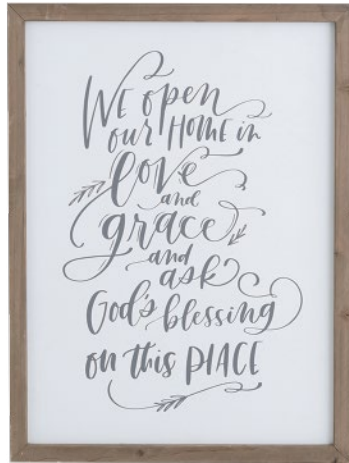 WE open
our HOME in
love
and
grace
and
ask
God's blessing
on this PLACE